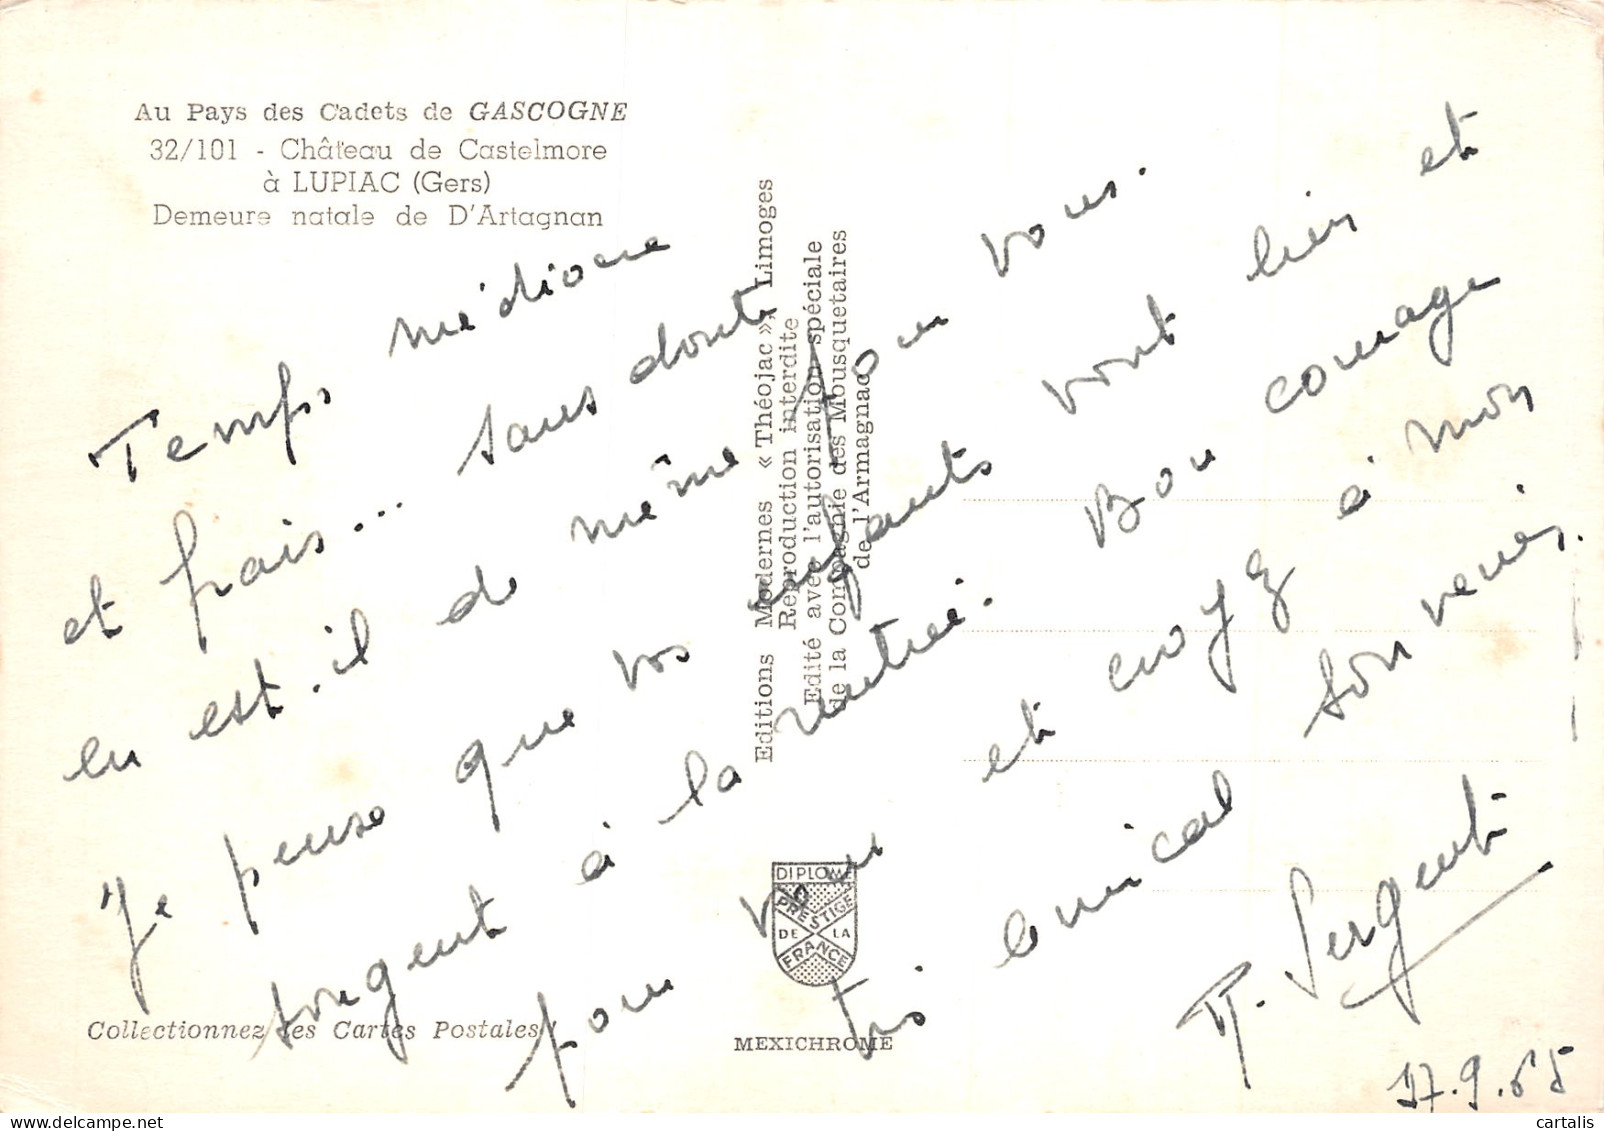 Au Pays des Cadets de GASCOGNE
32/101 - Château de Castelmore
à LUPIAC (Gers)
Demeure natale de D'Artagnan
Temps médiocre
et frais... sans doute
en est-il de même pour vous.
Je pense que vos enfants vont bien et
songent à la rentrée. Bon courage
pour vous et croyez à mon
très amical souvenir.
Sergent
17.9.65
Editions Modernes « Théojac », Limoges
Reproduction interdite
Edité avec l'autorisation spéciale
de la Compagnie des Mousquetaires
de l'Armagnac
DIPLOME
PRESTIGE
DE LA
FRANCE
Collectionnez les Cartes Postales !
MEXICHROME
cartalis
delcampe.net